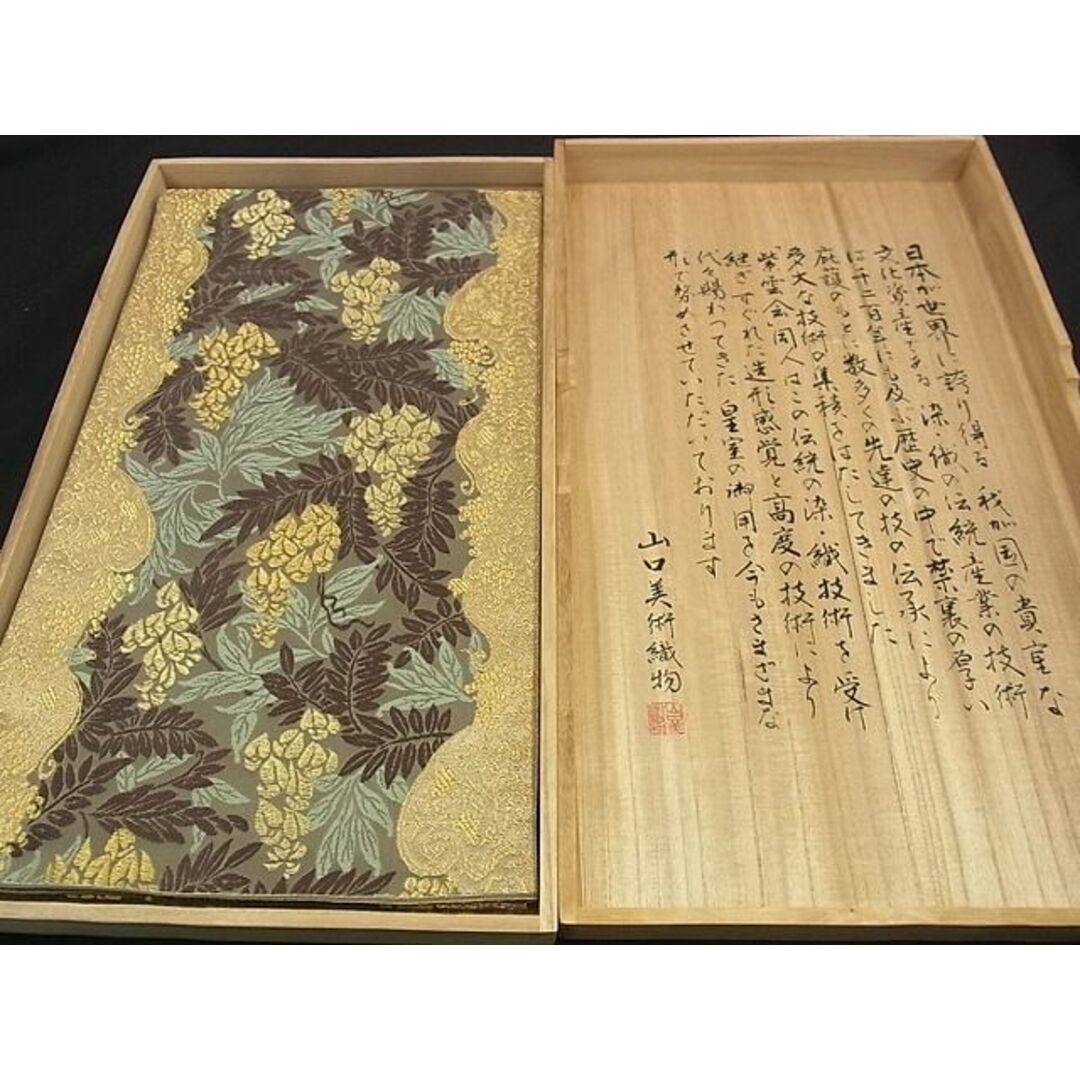 日本が世界に誇り得る 我が国の貴重な
文化資産である 染・織の伝統産業の技術
は千二百年にも及ぶ歴史の中で禁裏の厚い
庇護のもとに数多くの先達の技の伝承により
多大な技術の集積をはたしてきました
紫雲会同人はこの伝統の染・織技術を受け
継ぎすぐれた造形感覚と高度の技術により
代々賜わってきた 皇室の御用を今もさまざまな
形で努めさせていただいております
山口美術織物